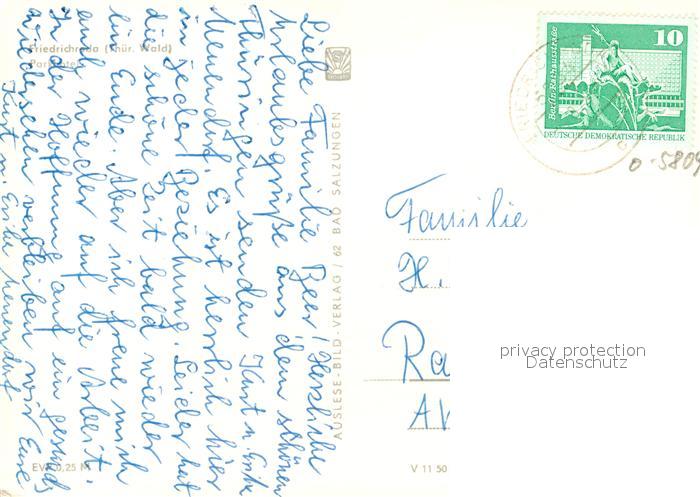 Friedrichroda (Thür. Wald)
Parkhotel
Liebe Familie Beer! Herzliche
Urlaubsgrüße aus dem schönen
Thüringen senden Kurt u. Erika
Neuendorf. Es ist herrlich hier
in jeder Beziehung. Leider hat
die schöne Zeit bald wieder
ein Ende. Aber ich freue mich
auch wieder auf die Arbeit.
In der Hoffnung auf ein gesundes
Wiedersehen verbleiben wir Eure
Kurt u. Erika Neuendorf
EVP 0,25 M
AUSLESE-BILD-VERLAG / 62 BAD SALZUNGEN
V 11 50
10
Berlin Rathausstraße
DEUTSCHE DEMOKRATISCHE REPUBLIK
FRIEDR
0-5809
Familie
H.
Ra
privacy protection
Datenschutz